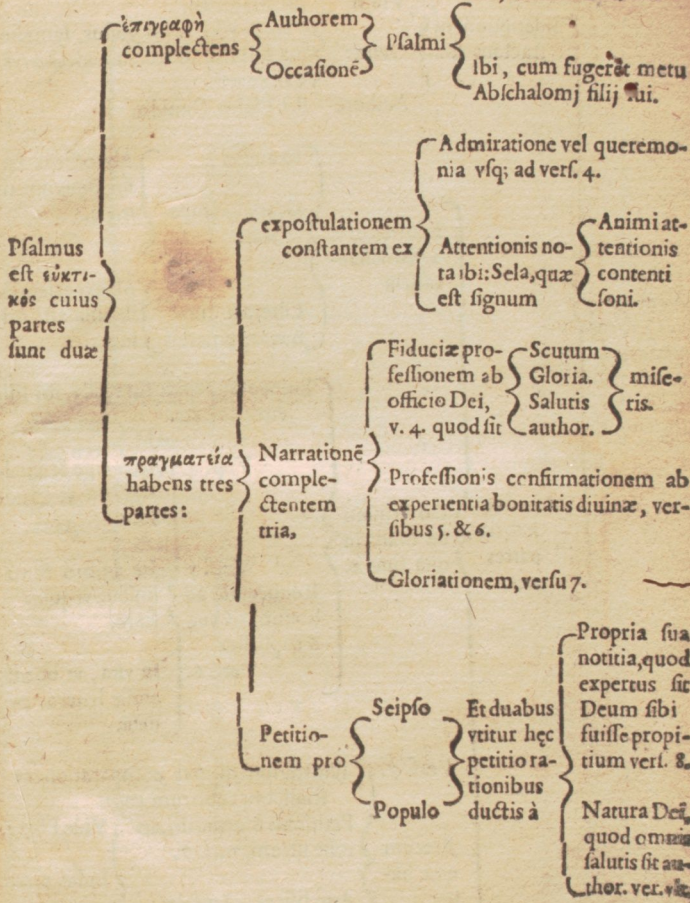 Psalmus
est εὐκτι-
κός cuius
partes
sunt duæ
ἐπιγραφὴ
complectens
Authorem
Occasionẽ
Psalmi
Ibi, cum fugerat metu
Abschalomj filij sui.
πραγματεία
habens tres
partes:
expostulationem
constantem ex
Admiratione vel queremo-
nia vsq; ad vers. 4.
Attentionis no-
ta ibi: Sela, quæ
est signum
Animi at-
tentionis
contenti
soni.
Narrationẽ
comple-
ctentem
tria,
Fiduciæ pro-
fessionem ab
officio Dei,
v. 4. quod sit
Scutum
Gloria.
Salutis
author.
mise-
ris.
Professionis confirmationem ab
experientia bonitatis diuinæ, ver-
sibus 5. & 6.
Gloriationem, versu 7.
Petitio-
nem pro
Seipso
Populo
Et duabus
vtitur hęc
petitio ra-
tionibus
ductis à
Propria sua
notitia, quod
expertus sit
Deum sibi
fuisse propi-
tium vers. 8.
Natura Dei,
quod omnis
salutis sit au-
thor. ver.